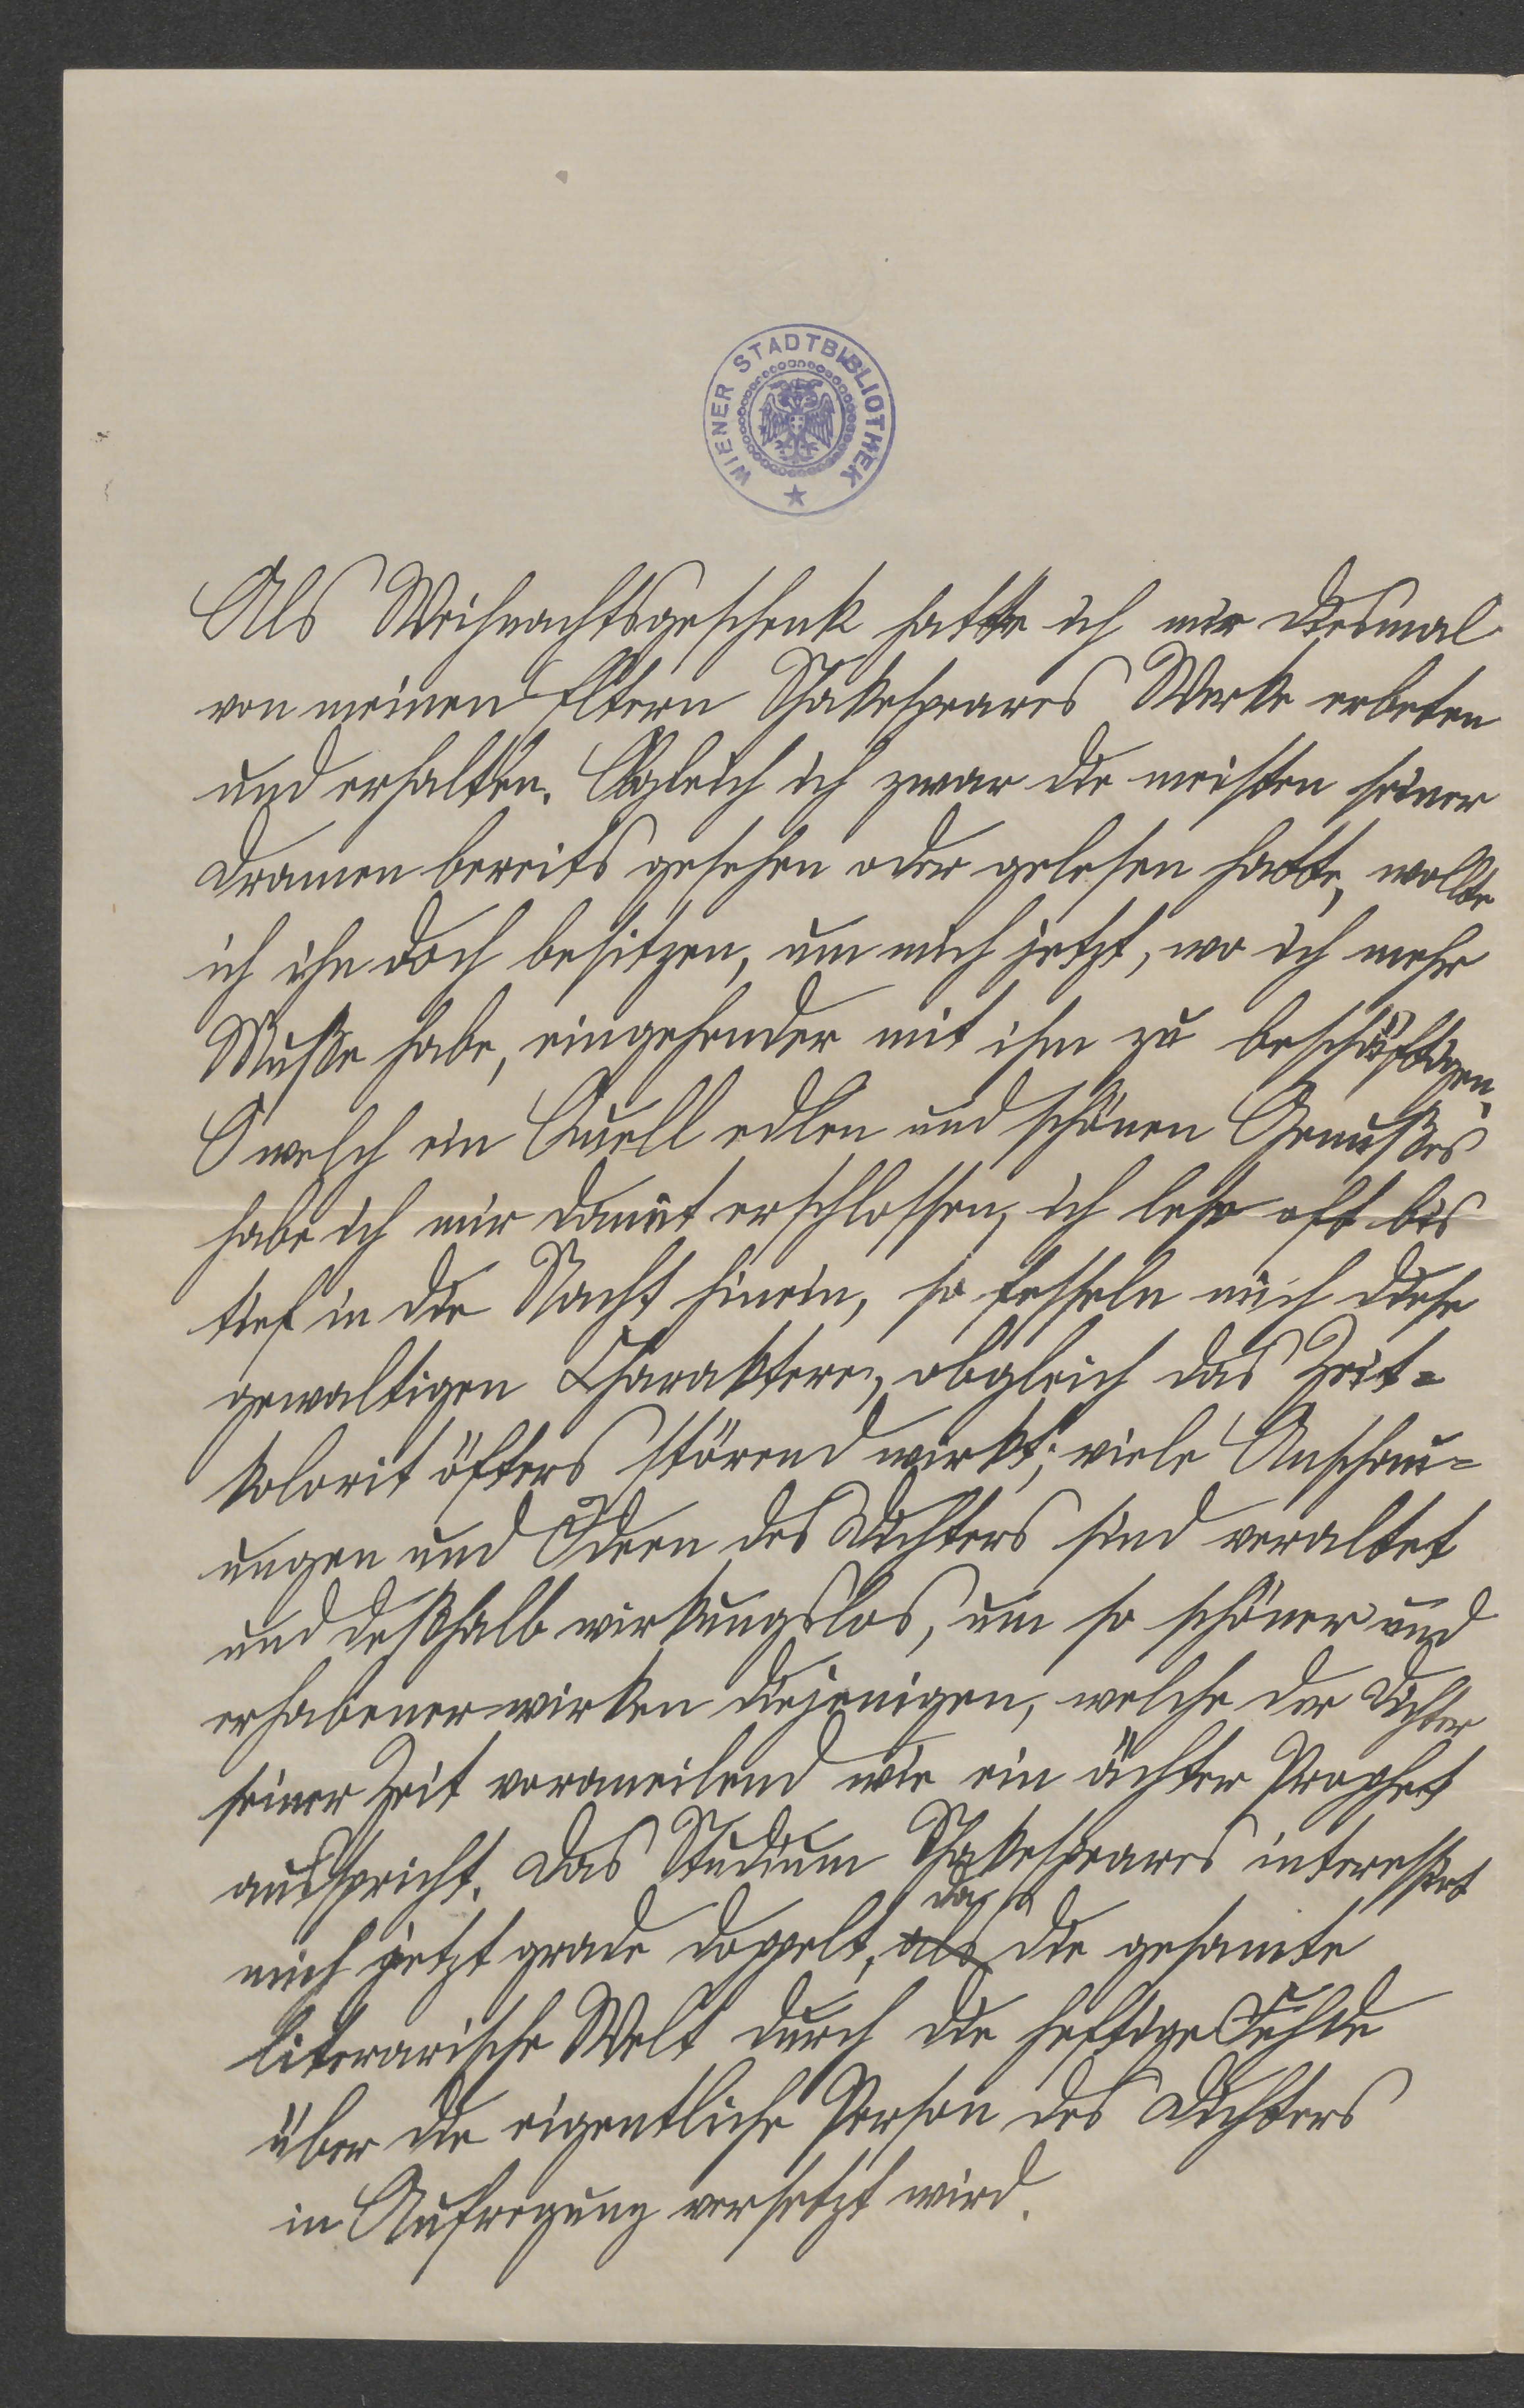 WIENER STADTBIBLIOTHEK
Als Weihnachtsgeschenk hatte ich mir diesmal
von meinen Eltern Shakespeares Werke erbeten
und erhalten. Obgleich ich zwar die meisten seiner
Dramen bereits gesehen oder gelesen hatte, wollte
ich ihn doch besitzen, um mich jetzt, wo ich mehr
Muße habe, eingehender mit ihm zu beschäftigen.
O welch ein Quell edlen und schönen Genußes
habe ich mir damit erschlossen, ich lese oft bis
tief in die Nacht hinein, so fesseln mich diese
gewaltigen Charaktere, obgleich das Zeit=
kolorit öfters störend wirkt; viele Anschau=
ungen und Ideen des Dichters sind veraltet
und deßhalb wirkungslos, um so schöner und
erhabener wirken diejenigen, welche der Dichter
seiner Zeit voraneilend wie ein ächter Prophet
ausspricht. Das Studium Shakespeares interessirt
mich jetzt grade doppelt, als da ja die gesamte
literarische Welt durch die heftige Fehde
über die eigentliche Person des Dichters
in Aufregung versetzt wird.